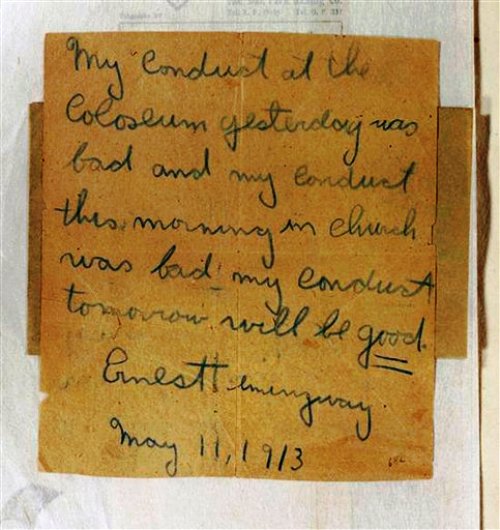 My conduct at the
Coloseum yesterday was
bad and my conduct
this morning in church
was bad my conduct
tomorrow will be good.
Ernest Hemingway.
May 11, 1913